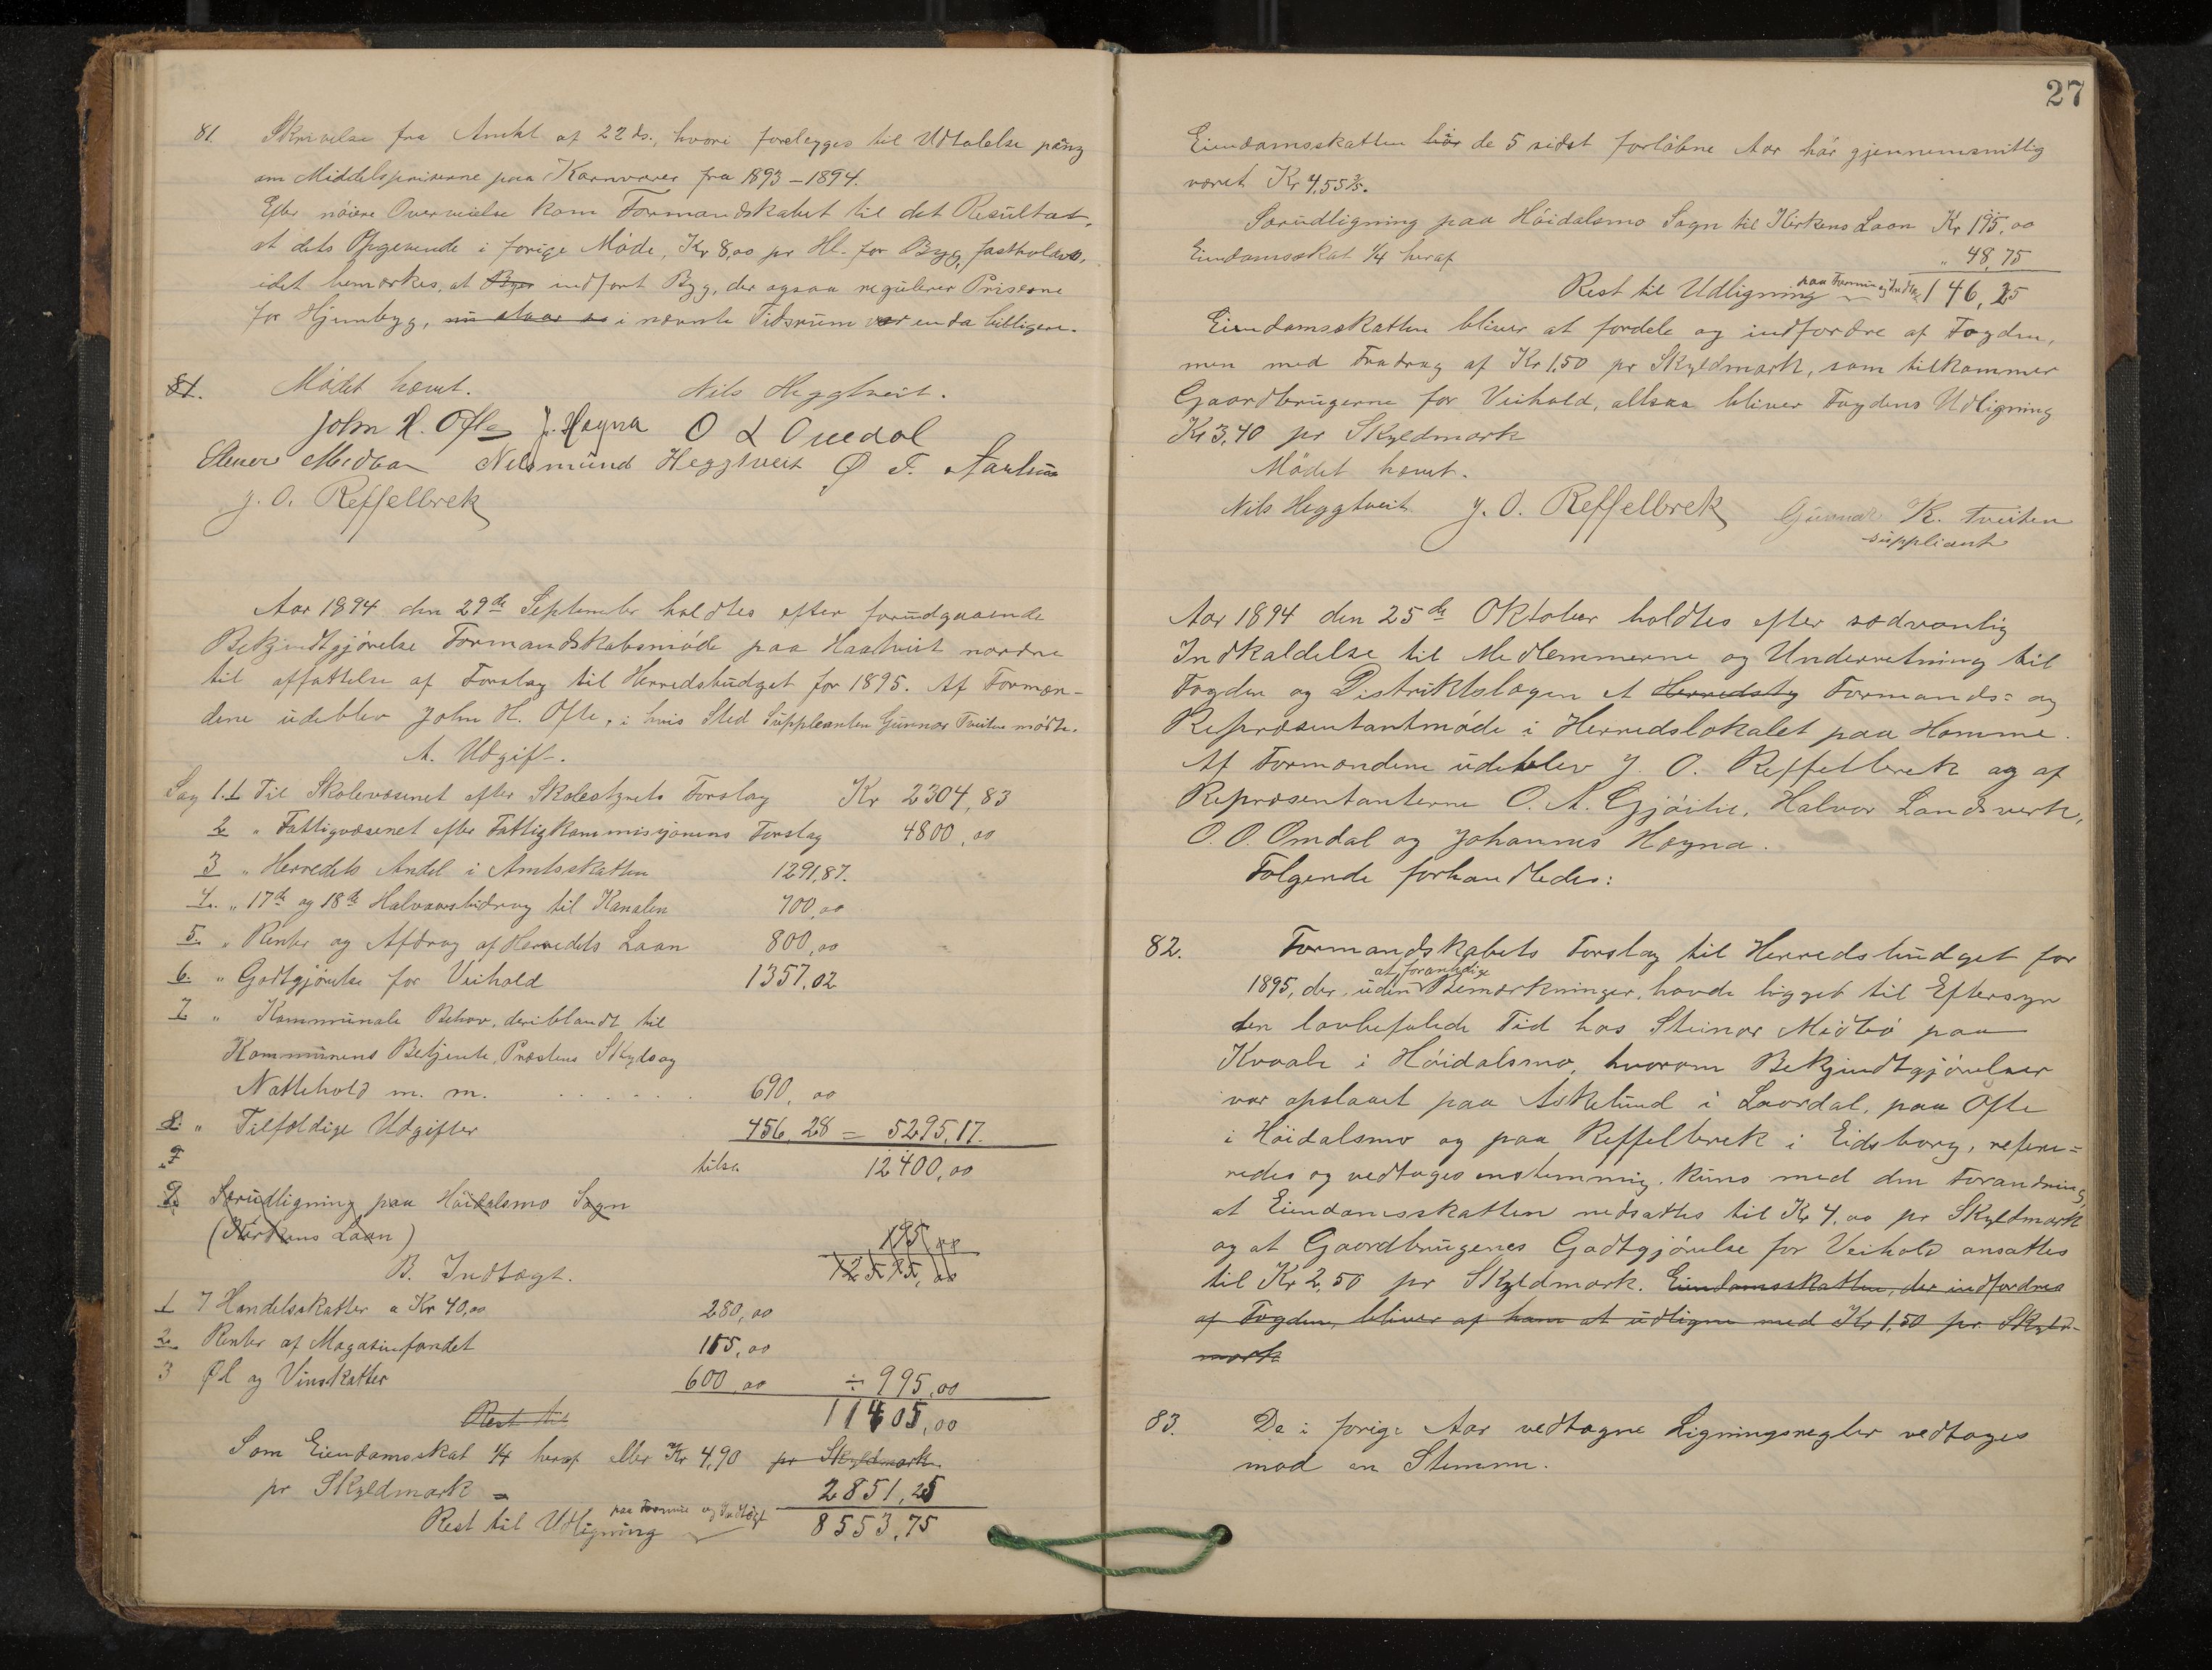 81. Skrivelse fra Amtet af 22 ds., hvori forelægges til Udtalelse
om Middelspriserne paa Kornvarer fra 1893–1894.
Efter nöiere Overveielse kom Formandskabet til det Resultat,
at dets Opgivende i forige Möde, Kr 8,00 pr Hl. for Byg, fastholdes,
idet bemærkes, at indfört Byg, der ogsaa regulerer Priserne
for Hjembyg, i nævnte Tidsrum var enda billigere.
81. Mödet hævet. Nils Heggtveit.
John H. Ofte J. Høgna O L Omdal
Steinar Midbø Nilsmund Heggtveit Ø T.
J. O. Reffelbrek
Aar 1894 den 29de September holdtes efter forudgaaende
Bekjendtgjörelse Formandskabsmöde paa Haatveit nordre
til affattelse af Forslag til Herredsbudget for 1895. Af Formæn-
dene udeblev John H. Ofte, i hvis Sted Suppleanten Gunnar Tveiten mödte.
A. Udgift.
Sag 1. 1 Til Skolevæsenet efter Skolestyrets Forslag Kr 2304,83
2 " Fattigvæsenet efter Fattigkommissjonens Forslag 4800,00
3 " Herredets Andel i Amtsskatten 1291,87.
4. " 17de og 18de Halvaarsbidrag til Kanalen 700,00
5. " Renter og Afdrag af Herredets Laan 800,00
6. " Godtgjörelse for Veihold 1357,02
7 " Kommunale Behov, deriblandt til
Kommunens Betjente, Præstens Skyds og
Nattehold m. m. . . . . . . 690,00
8. " Tilfældige Udgifter 456,28 = 5295,17.
tils. 12400,00
9. Særudligning paa Höidalsmo Sogn
(Kirkens Laan) 195,00
B. Indtægt. 12595,00
1 7 Handelsskatter a Kr 40,00 280,00
2 Renter af Magasinfondet 115,00
3 Øl og Vinskatter 600,00 ÷ 995,00
Rest til 11405,00
Som Eiendomsskat 1/4 heraf eller Kr 4,90 pr Skyldmark
pr Skyldmark = 2851,25
Rest til Udligning paa Formue og Indtægt 8553,75
27
Eiendomsskatten har de 5 sidst forlöbne Aar har gjennemsnitlig
været Kr 4,55 3/5.
Særudligning paa Höidalsmo Sogn til Kirkens Laan Kr 195,00
Eiendomsskat 1/4 heraf " 48,75
Rest til Udligning paa Formue og Indtægt 146,25
Eiendomsskatten bliver at fordele og indfordre af Fogden,
men med Fradrag af Kr 1,50 pr Skyldmark, som tilkommer
Gaardbrugerne for Veihold, altsaa bliver Fogdens Udligning
Kr 3,40 pr Skyldmark
Mödet hævet.
Nils Heggtveit. J. O. Reffelbrek Gunnar K. Tveiten
suppliant
Aar 1894 den 25de Oktober holdtes efter sædvanlig
Indkaldelse til Medlemmerne og Underretning til
Fogden og Distriktslægen et Herredsty Formands= og
Repræsentantmöde i Herredslokalet paa Homme.
Af Formændene udeblev J. O. Reffelbrek og af
Repræsentanterne O. A. Gjöitil, Halvor Landsverk,
O. O. Omdal og Johannes Høgna.
Følgende forhandledes:
82. Formandskabets Forslag til Herredsbudget for
1895, der, uden at foranledige Bemærkninger, havde ligget til Eftersyn
den lovbefalede Tid hos Steinar Midbö paa
Kvaale i Höidalsmo, hvorom Bekjendtgjörelser
var opslaaet paa Askelund i Laardal, paa Ofte
i Höidalsmo og paa Reffelbrek i Eidsborg, refere=
redes og vedtoges enstemmig, kuns med den Forandring,
at Eiendomsskatten nedsattes til Kr 4,00 pr Skyldmark
og at Gaardbrugenes Godtgjörelse for Veihold ansattes
til Kr 2,50 pr Skyldmark. Eiendomsskatten, der indfordres
af Fogden, bliver af ham at udligne med Kr 1,50 pr Skyld-
mark
83. De i forige Aar vedtagne Ligningsregler vedtoges
mod en Stemme.